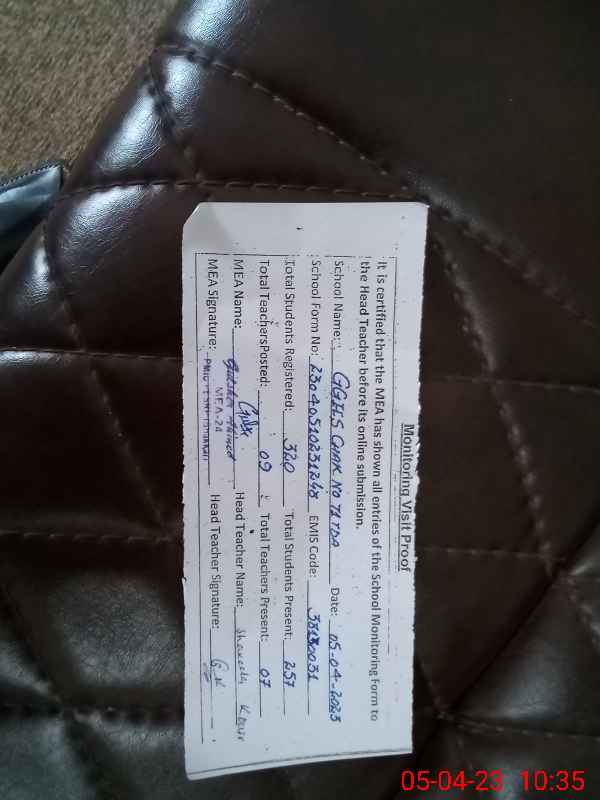 Monitoring Visit Proof
It is certified that the MEA has shown all entries of the School Monitoring Form to
the Head Teacher before its online submission.
School Name: GGHS CHAK NO 72 TDA Date: 05-04-2023
School Form No: 23040510231248 EMIS Code: 38130031
Total Students Registered: 320 Total Students Present: 257
Total TeachersPosted: 09 Total Teachers Present: 07
MEA Name: Head Teacher Name: Shakeela
MEA Signature: MEA-24 Head Teacher Signature:
05-04-23 10:35